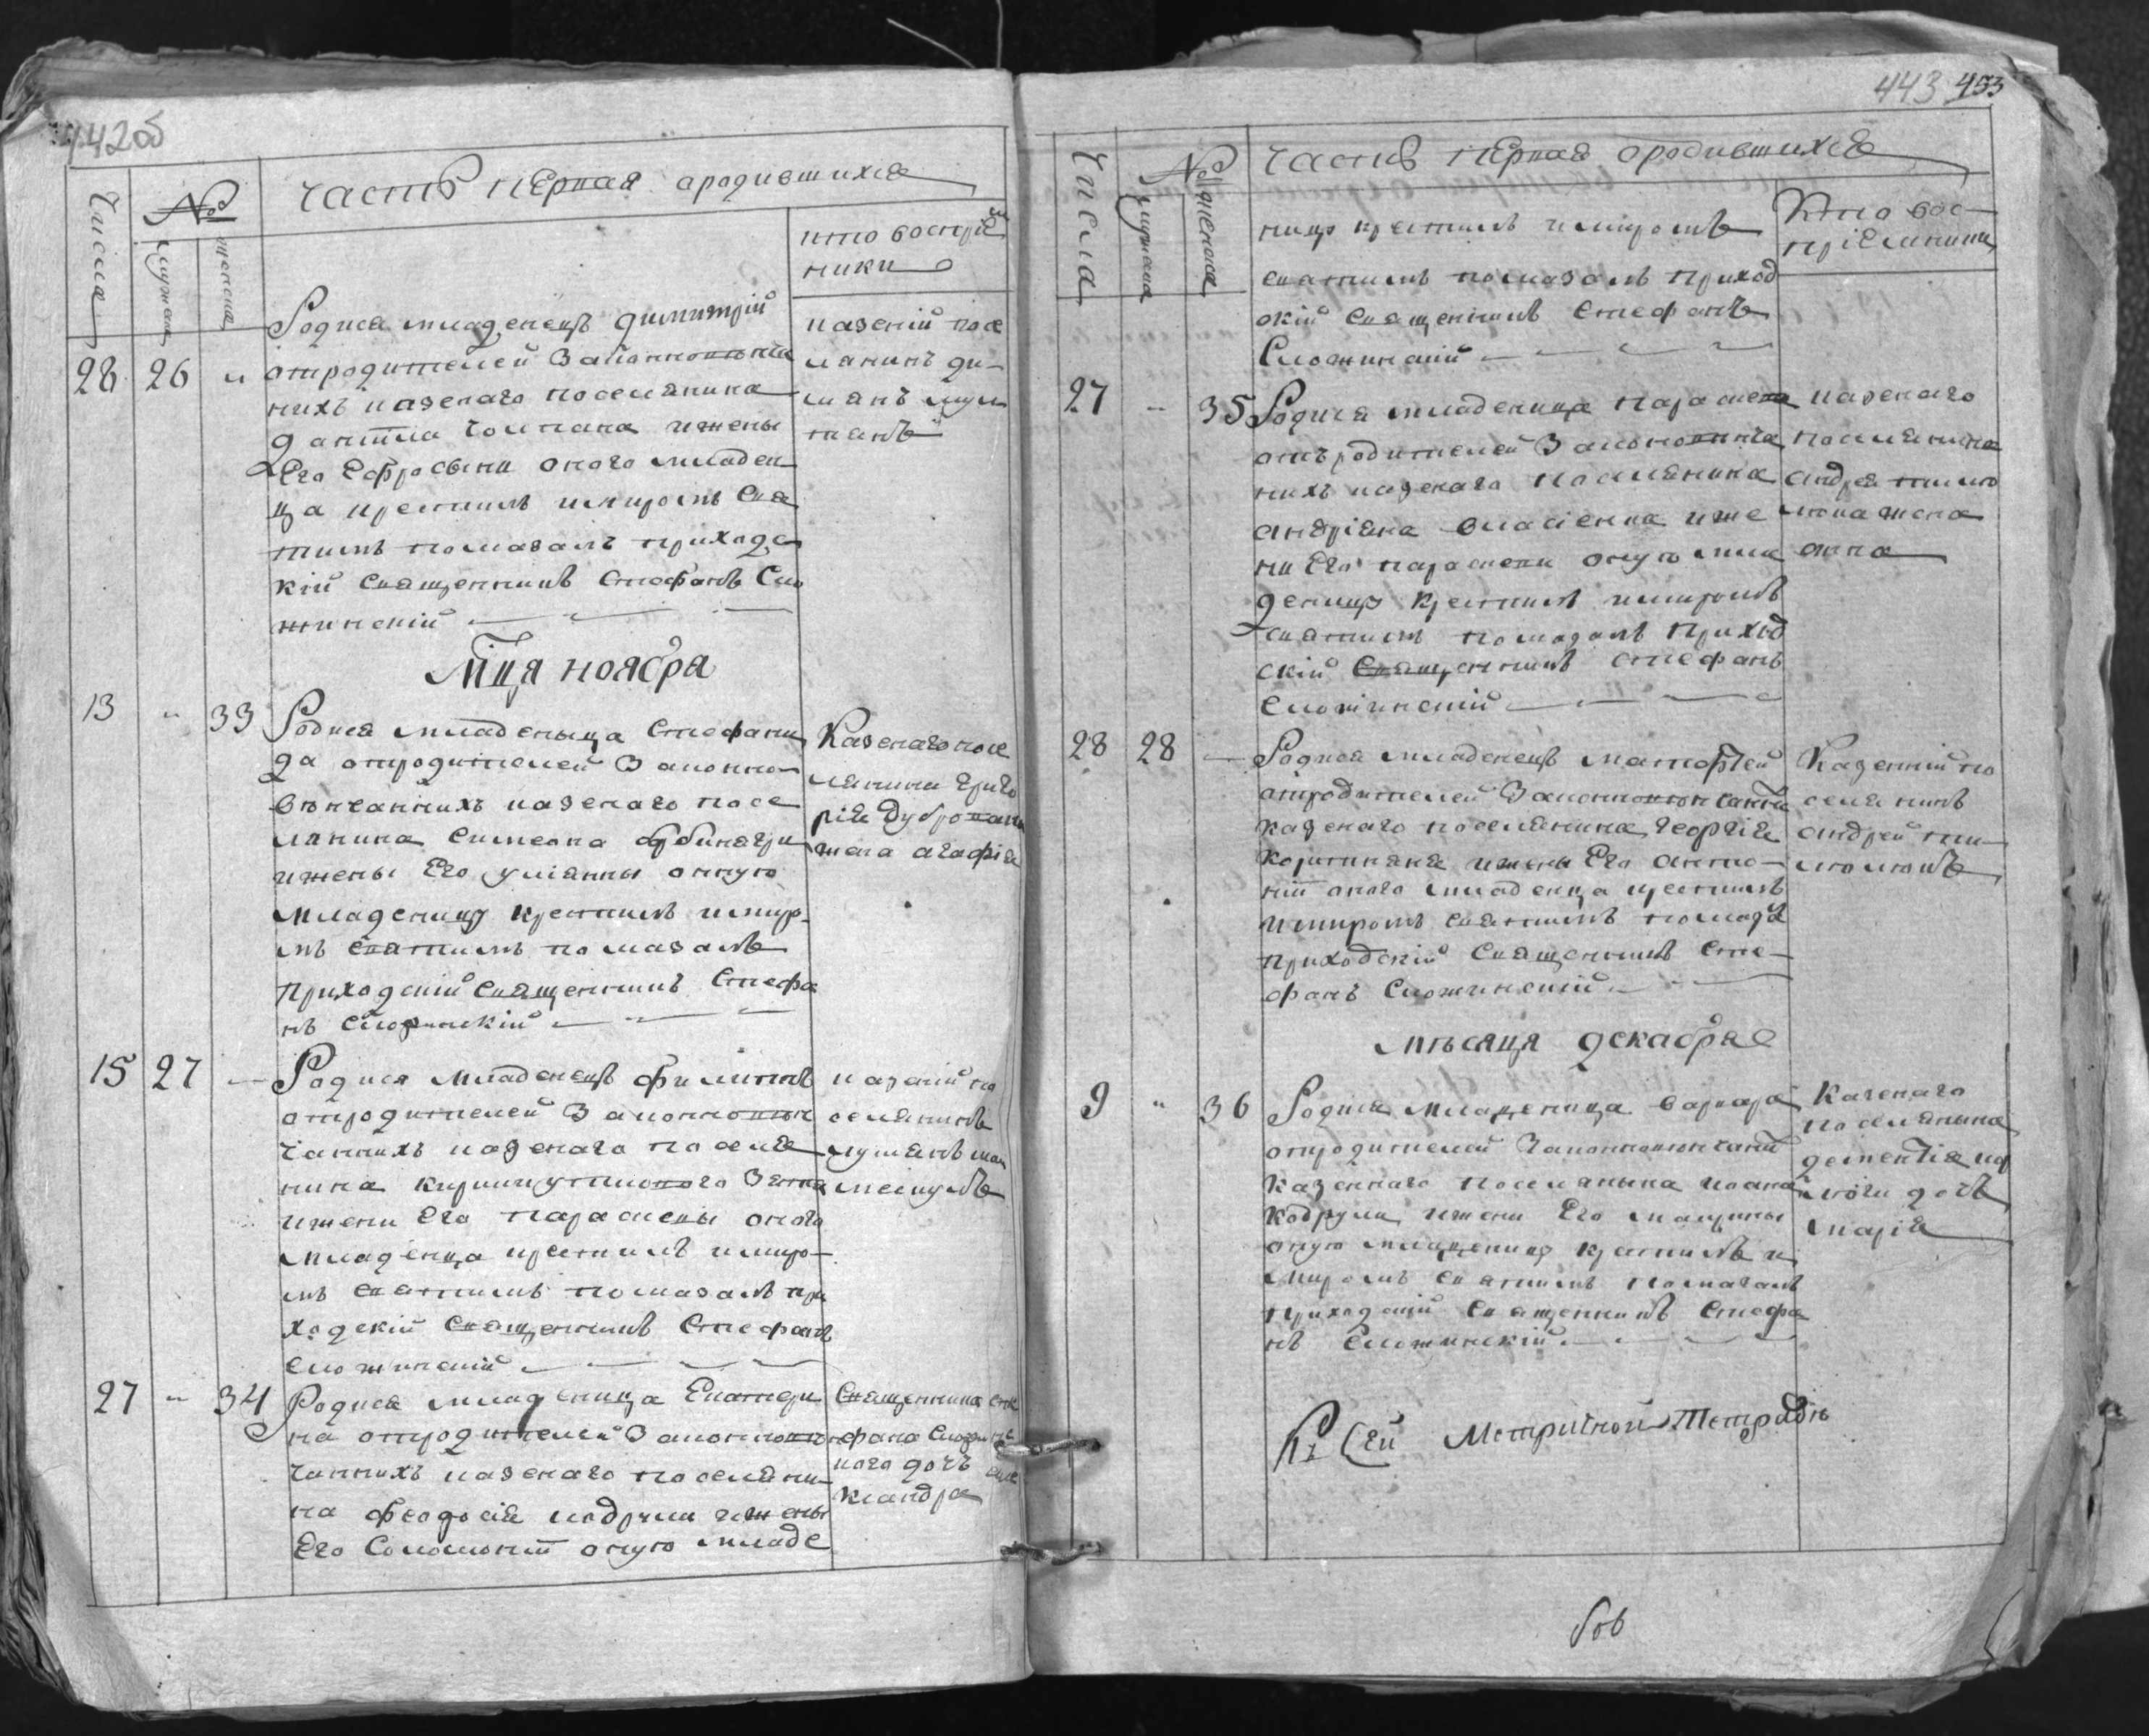 442об
Часть первая ародившихся
Числа
№
мужеска
женска
кто воспріем
ники
Родися младенецъ димитрій
28 26 „ отродителей Законновѣнча
нихъ казенаго поселянина
даниила Чолпана ижены
Его Ефросыни оного младен
ца крестилъ имиромъ Свя
тимъ помазалъ приходс
кій Священникъ Стефанъ Сло
жинскій
казеній посе
лянинъ ди-
миянъ мун
тянъ
Мця ноября
13 „ 33 Родися младеныца Стефани
да отродителей Законно-
вѣнчаннихъ казенаго посе
лянина Симеона
ижены Его улияны онную
младеницу крестилъ имиро
мъ святимъ помазалъ
приходскій Священникъ Стефа
нъ Сложинскій
Казенагопосе
лянина Григо
рія Дуброва
жена агафія
15 27 — Родися младенецъ филиппъ
отродителей Законновѣн
чаннихъ казенаго поселя
нина
ижени Его параскевы оного
младенца крестилъ имиро-
мъ святимъ помазалъ при
ходскій Священникъ Стефанъ
Сложинскій
казеній по
селянинъ
27 „ 34 Родися младеница Екатери
на отродителей Законновѣн
чаннихъ казенаго поселяни-
на феодосія кодрии ижены
Его Соломоніи оную младе
Священника сте
фана Сложинс
кого дочъ Але
ксандра
443 453
Числа
№
мужеска
женска
Часть первая ородившихся
ницу крестилъ имиромъ
Кто вос-
пріемники
святимъ помазалъ приход
скій Священникъ Стефанъ
Сложинскій
27 „ 35 Родися младеница параскева
отъродителей Законновѣнча
нихъ казенаго поселянина
андріяна власіенка иже
ни Его параскеви оную мла
деницу крестилъ имиромъ
святимъ помазалъ приход
скій Священникъ стефанъ
Сложинскій
казенаго
поселянина
андрея тимо
жона жена
анна
28 28 — Родися младенецъ матфей
отродителей Законновѣнчанни
казенаго поселянина георгія
ижены Его анто-
ніи оного младенца крестилъ
имиромъ святимъ помаза
приходскій Священникъ Сте-
фанъ Сложинскій
Казенній по
селянинъ
андрей
мѣсяця декабря
9 „ 36 Родися младеница варвара
отродителей Законновѣнчани
Казеннаго поселянына иоана
Кодрули ижени Его марины
оную младеницу крстилъ и
миромъ святимъ помазалъ
приходскій Священникъ Стефа
нъ Сложинскій
Казенаго
поселянына
дементія
дочъ
марія
Къ Сей Метричной Тетради